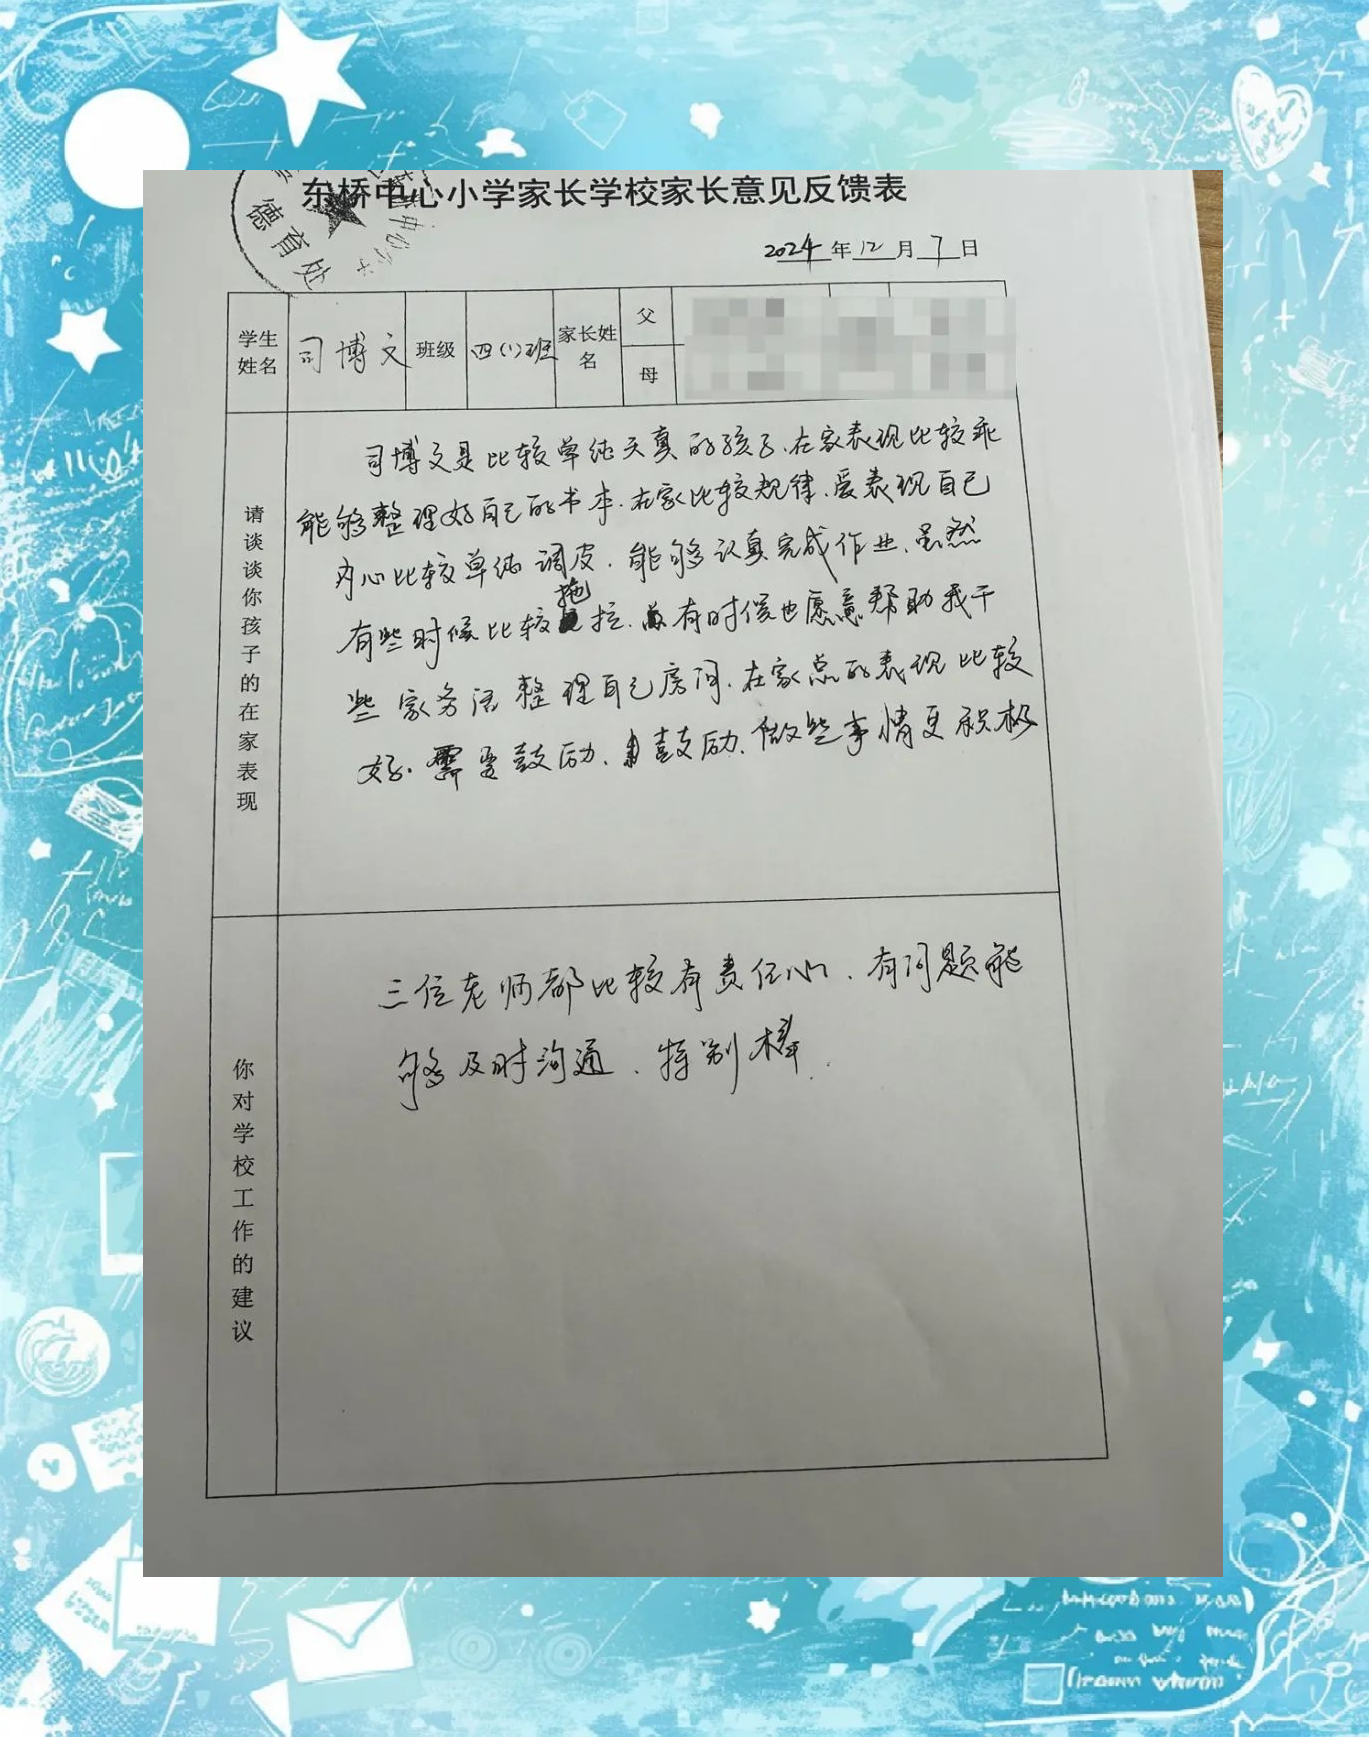 东桥中心小学家长学校家长意见反馈表
德育处
2024年12月7日
学生姓名 司博文 班级 四(1)班 家长姓名 父
母
请谈谈你孩子的在家表现
司博文是比较单纯天真的孩子.在家表现比较乖
能够整理好自己的书本.在家比较规律.爱表现自己
内心比较单纯调皮.能够认真完成作业.虽然
有些时候比较拖拉.有时候也愿意帮助我干
些家务活整理自己房间.在家总的表现比较
好.需要鼓励、鼓励.做些事情更积极
你对学校工作的建议
三位老师都比较有责任心.有问题能
够及时沟通.特别棒.